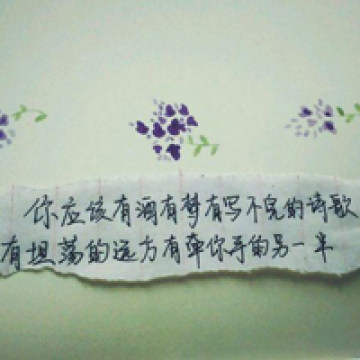 你应该有酒有梦有写不完的诗歌
有坦荡的远方有牵你手的另一半